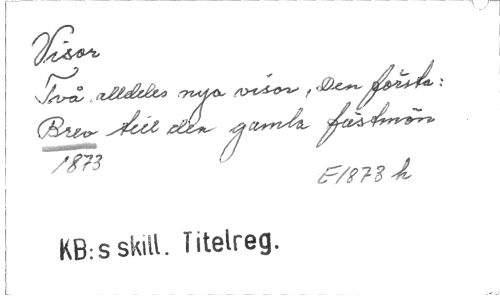 Visor
Två alldeles nya visor, Den första:
Brev till den gamla fästmön
1873
E1873 h
KB:s skill. Titelreg.